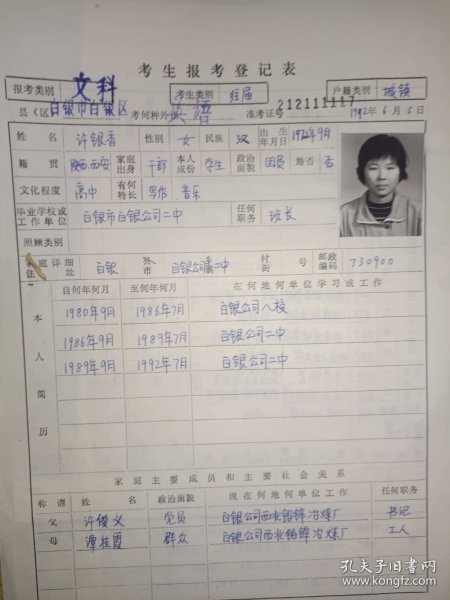 考生报考登记表
报考类别 文科 考生类别 往届 户籍类别 城镇
县(区) 白银市白银区 考何种外语 英语 准考证号 212111117 1992年6月5日
姓名 许银香 性别 女 民族 汉 出生年月日 1972年9月
籍贯 陕西西安 家庭出身 干部 本人成份 学生 政治面貌 团员 婚否 否
文化程度 高中 有何特长 写作、音乐
毕业学校或工作单位 白银市白银公司二中 任何职务 班长
照顾类别
家庭详细住址 白银 县市 白银公司二中 村街 号 邮政编码 730900
本人简历
自何年何月 至何年何月 在何地何单位学习或工作
1980年9月 1986年7月 白银公司八校
1986年9月 1989年7月 白银公司二中
1989年9月 1992年7月 白银公司二中
家庭主要成员和主要社会关系
称谓 姓名 政治面貌 现在何地何单位工作 任何职务
父 许俊义 党员 白银公司西北铅锌冶炼厂 书记
母 谭桂霞 群众 白银公司西北铅锌冶炼厂 工人
孔夫子旧书网
book.kongfz.com